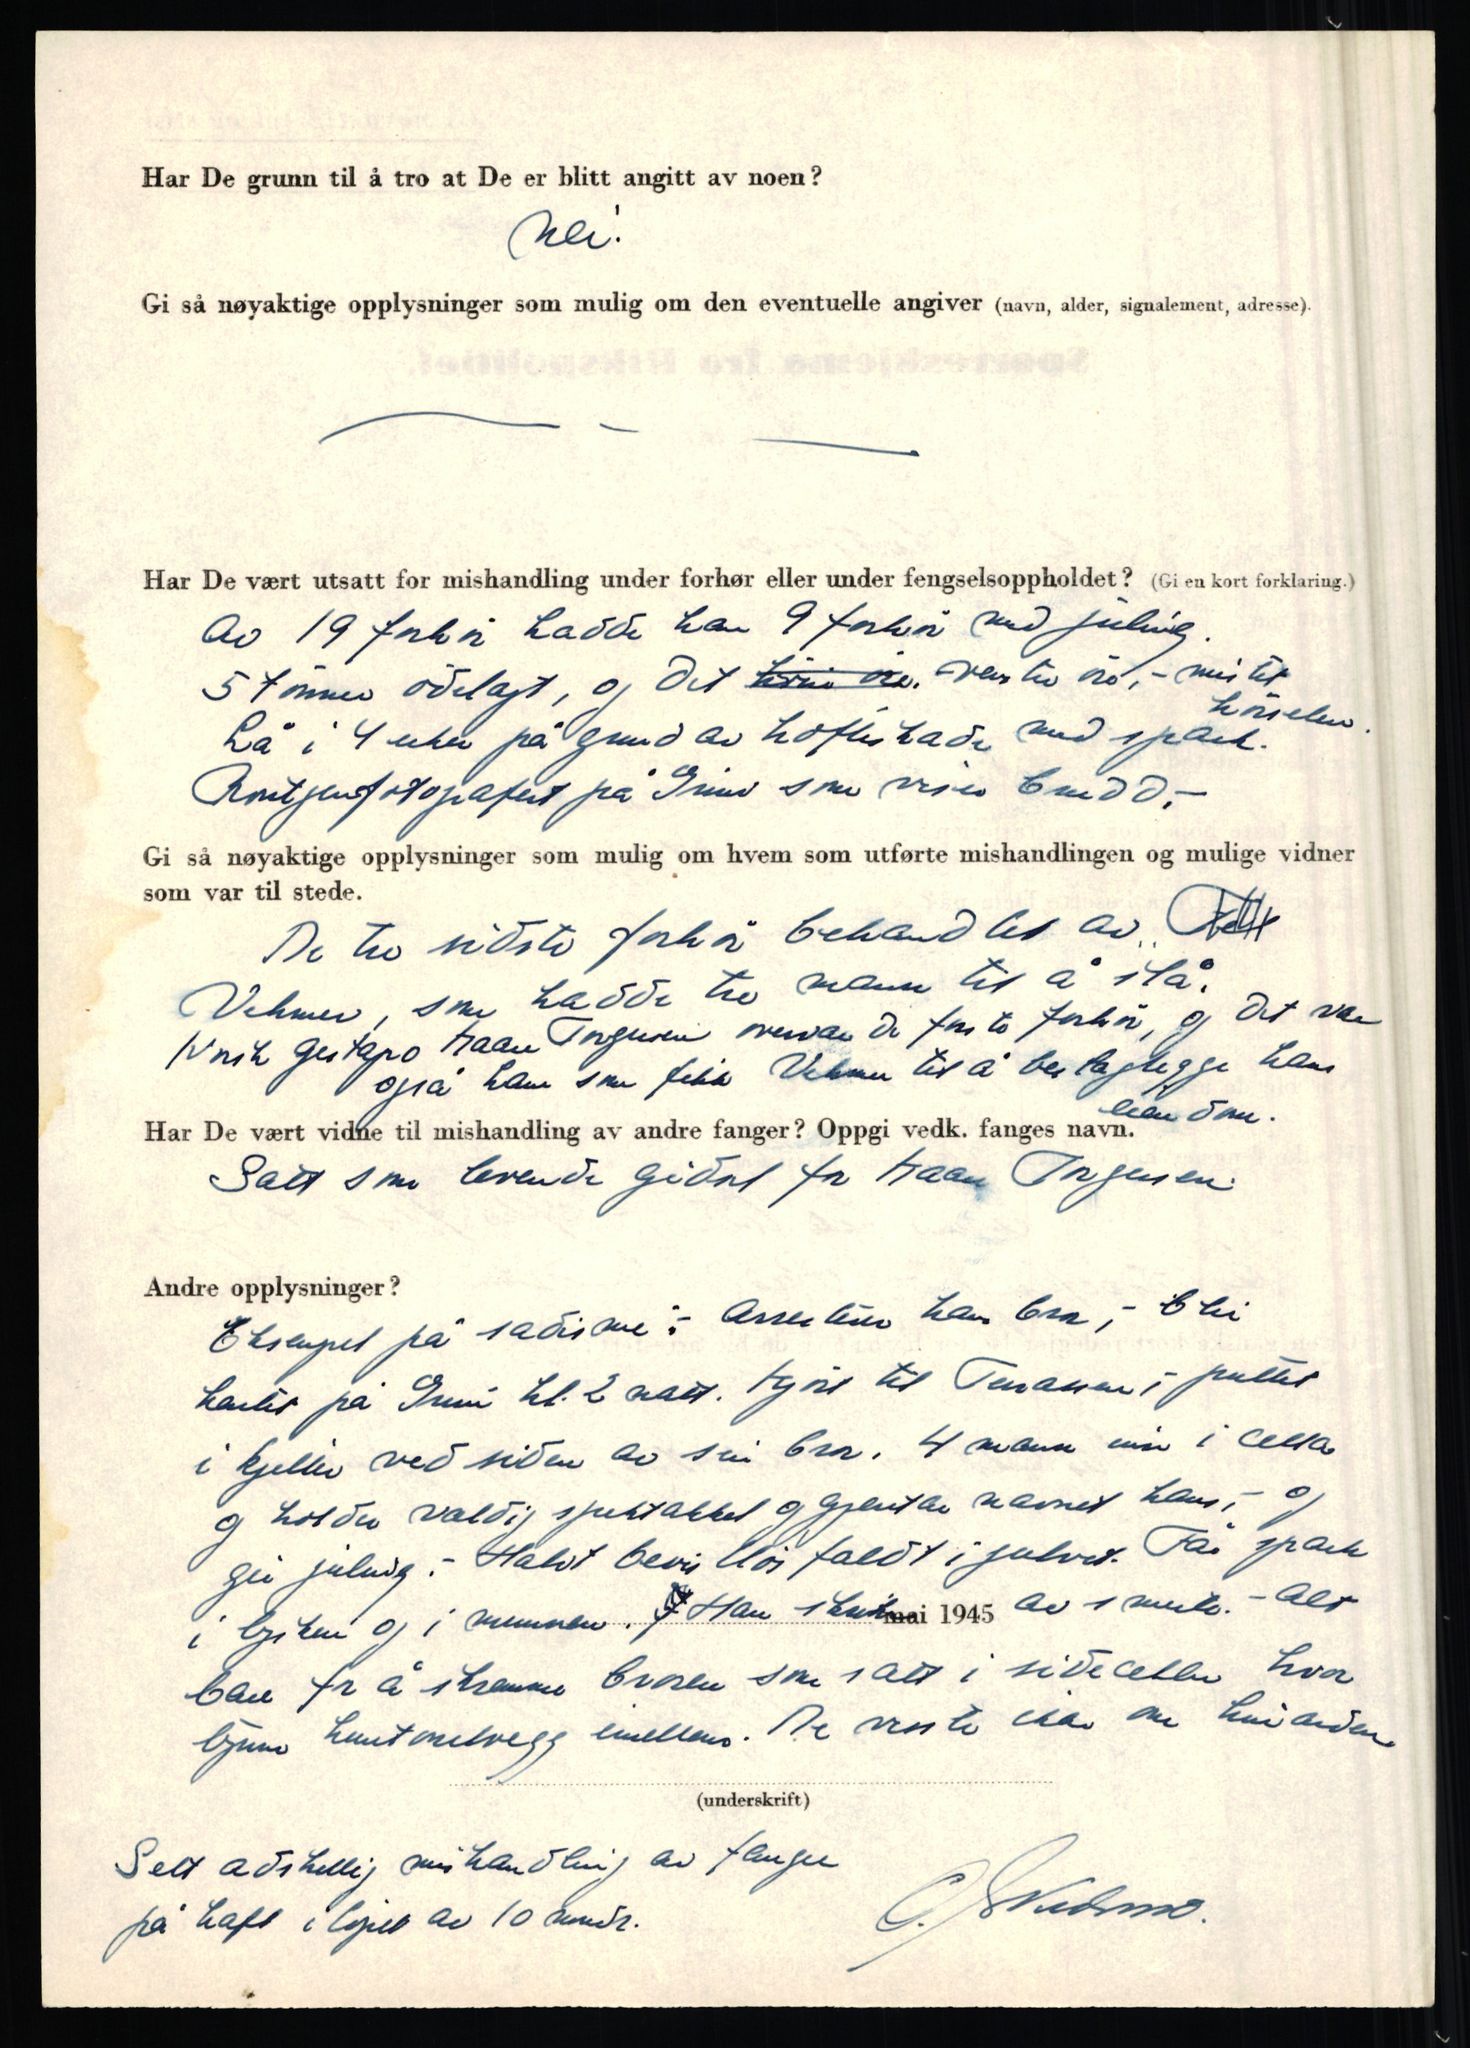 Har De grunn til å tro at De er blitt angitt av noen?
Nei!
Gi så nøyaktige opplysninger som mulig om den eventuelle angiver (navn, alder, signalement, adresse).
Har De vært utsatt for mishandling under forhør eller under fengselsoppholdet? (Gi en kort forklaring.)
Av 19 forhör hadde han 9 forhör med juling.
5 tönner ödelagt, og det venstre öre, - mistet
hörselen.
Lå i 4 uker på grund av hofteskade med spark.
Röntgenfotografert på Grini som viser brudd. -
Gi så nøyaktige opplysninger som mulig om hvem som utførte mishandlingen og mulige vidner
som var til stede.
De tre sidste forhör behandlet av
Vehmer, som hadde tre mann til å slå.
Norsk Gestapo Kaare Torgersen overvar de förste forhör, og det var
også han som fikk Vehmer til å beslaglegge hans
eiendom.
Har De vært vidne til mishandling av andre fanger? Oppgi vedk. fanges navn.
Satt som levende gidsel for Kaare Torgersen.
Andre opplysninger?
Eksempel på sadisme: - Arresterer hans bror, - blir
hentet på Grini kl. 2 natt. Kjört til Terassen, - puttet
i kjeller ved siden av sin bror. 4 mann inn i cella
og holder valdig spektakkel og gjentar navnet hans, - og
gir juling. - Halvt bevistlös faldt i gulvet. Får spark
i lysken og i munnen. Han skriker av smerte. - Alt
mai 1945
bare for å skremme broren som satt i sidecellen hvor
tynn kuntonetvegg imellem. De visste ikke om hverandre
(underskrift)
Sett adskillig mishandling av fanger
på haft i löpet av 10 mndr.